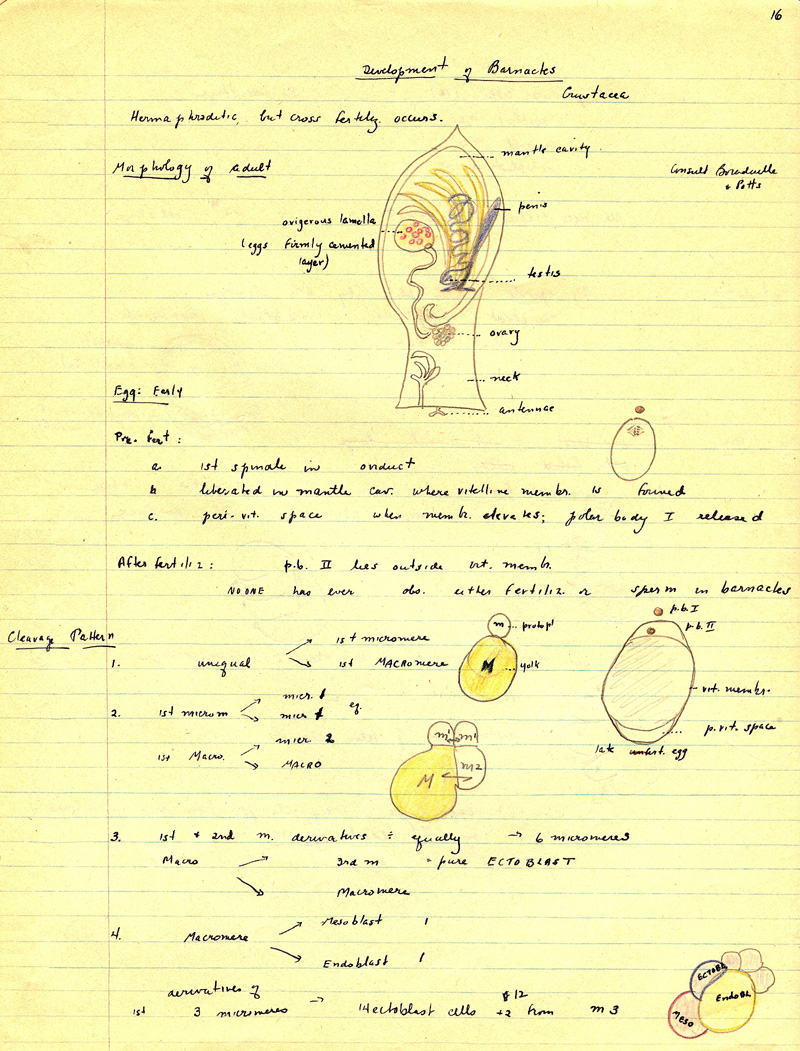 16
Development of Barnacles
Crustacea
Hermaphroditic, but cross fertiliz. occurs.
Morphology of adult
mantle cavity
Consult Boradaille
& Potts
penis
ovigerous lamella
(eggs firmly cemented
layer)
testis
ovary
neck
antennae
Egg: Early
Pre. fert:
a. 1st spindle in oviduct
b liberated in mantle cav. where vitelline membr. is formed
c. peri-vit. space when membr. elevates; polar body I released
After fertiliz: p.b. II lies outside vit. memb.
NO ONE has ever obs. either fertiliz. or sperm in barnacles
Cleavage Pattern
p.b. I
p.b. II
m protopl
M yolk
1. unequal
1st micromere
1st MACROmere
vit. membr.
p.vit. space
late unfert. egg
2. 1st microm
micr. 1
micr 1
eq.
1st Macro.
micr 2
MACRO
m1 m1
M m2
3. 1st & 2nd m. derivatives ÷ equally → 6 micromeres
Macro
3rd m = pure ECTOBLAST
Macromere
4. Macromere
Mesoblast 1
Endoblast 1
derivatives of
1st 3 micromeres → 14 ectoblast cells 12 +2 from m3
ECTOBL
EndoBl
MESO